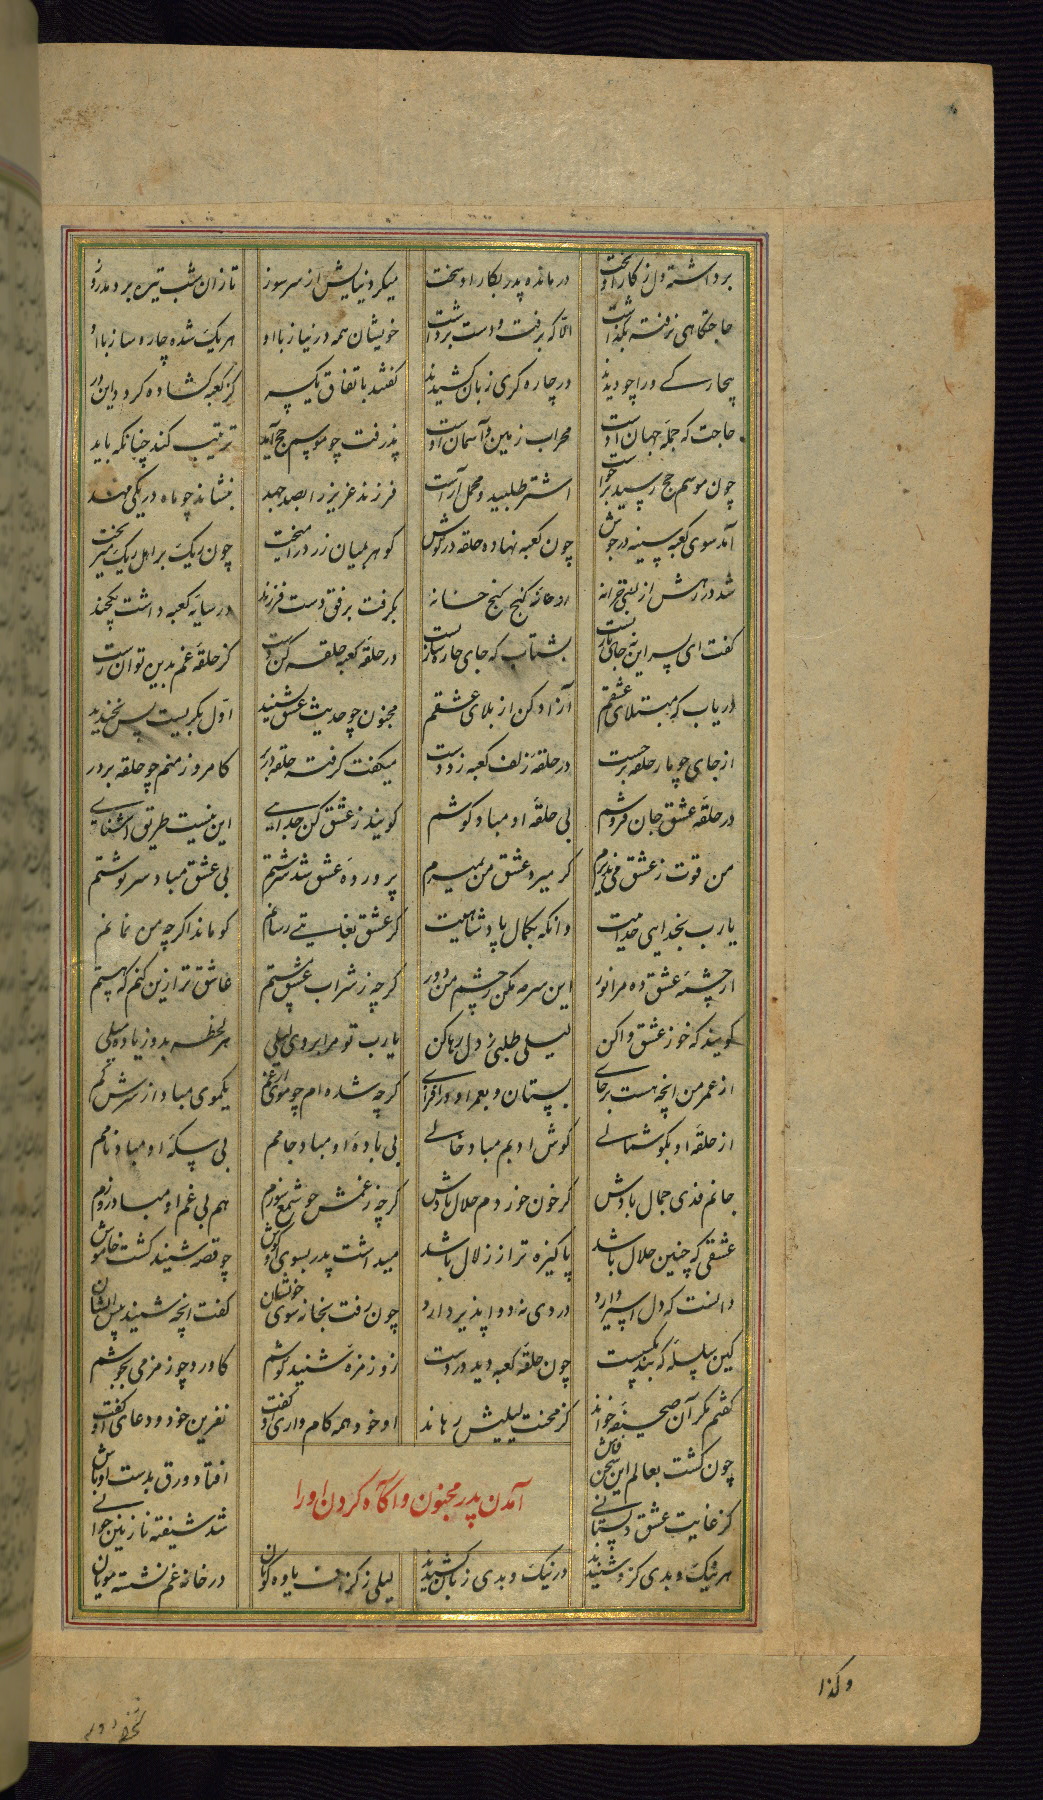 برداشته دل ز کار او بخت درمانده پدر بکار او سخت میکرد نیایش از سر سوز تا زان شب تیره بردمد روز
حاجتگاهی نرفته نگذاشت الا که برفت و دست برداشت خویشان همه در نیاز با او هر یک شده چاره ساز با او
بیچارگی ورا چو دیدند در چاره گری زبان کشیدند گفتند باتفاق یکسر کز کعبه گشاده گردد این در
حاجت که جمله جهان اوست محراب زمین و آسمان اوست پذرفت چو موسم حج آید ترتیب کند چنانکه باید
چون موسم حج رسید برخاست اشتر طلبید و محمل آراست فرزند عزیز را بصد جهد بنشاند چو ماه در یکی مهد
آمد سوی کعبه سینه در جوش چون کعبه نهاده حلقه در گوش گوهر بمیان زر در آمیخت چون ریگ بر اهل ریگ میریخت
شد در رهش از بسی خزانه خانه گنج گنج خانه بگرفت برفق دست فرزند در سایه کعبه داشت یکچند
گفت ای پسر این نه جای بازیست بشتاب که جای چاره سازیست در حلقه کعبه حلقه کن دست کز حلقه غم بدین توان رست
دریاب که مبتلای عشقم آزاد کن از بلای عشقم مجنون چو حدیث عشق بشنید اول بگریست پس بخندید
از جای چو مار حلقه برجست در حلقه زلف کعبه زد دست میگفت گرفته حلقه در بر کامروز منم چو حلقه بر در
در حلقه عشق جان فروشم بی حلقه او مباد گوشم گویند ز عشق کن جدایی این نیست طریق آشنایی
من قوت ز عشق می پذیرم گر میرد عشق من بمیرم پرورده عشق شد سرشتم بی عشق مباد سرنوشتم
یارب بخدایی خداییت وانگه بکمال پادشاهیت کز عشق بغایتی رسانم کو ماند اگرچه من نمانم
از چشمه عشق ده مرا نور این سرمه مکن ز چشم من دور گرچه ز شراب عشق مستم عاشق تر ازین کنم که هستم
گویند که خو ز عشق واکن لیلی طلبی ز دل رها کن یارب تو مرا بروی لیلی هر لحظه بده زیاده میلی
از عمر من انچه هست برجای بستان و بعمر او درافزای گرچه شده ام چو مویش از غم یکموی مباد از سرش کم
از حلقه او بگوشمالی گوش ادبم مباد خالی بی باده او مباد جامم بی سکه او مباد نامم
جانم فدی جمال بادش گر خون خوردم حلال بادش گرچه ز غمش چو شمع سوزم هم بی غم او مباد روزم
عشقی که چنین حلال باشد پاکیزه تر از زلال باشد میداشت پدر بسوی او گوش چو قصه شنید گشت خاموش
دانست که دل اسیر دارد دردی نه دوا پذیر دارد چون رفت بخانه سوی خویشان گفت انچه شنید پیش ایشان
کین سلسله که بند بشکست چون حلقه کعبه دید در دست زو زمزمه شنید گوشم کاورد چو زمزمی بجوشم
گفتم مگر آن صحیفه خواند کز محنت لیلیش رهاند او خود همه کام و رای او گفت نفرین خود و دعای او گفت
چون گشت بعالم این سخن فاش افتاد ورق بدست اوباش
کز غایت عشق دلستانی شد شیفته نازنین جوانی
آمدن پدر مجنون و آگاه کردن او را
هر نیک و بدی کزو شنیدند در نیک و بدی زبان کشیدند لیلی ز گزاف یاوه گویان در خانه غم نشسته مویان